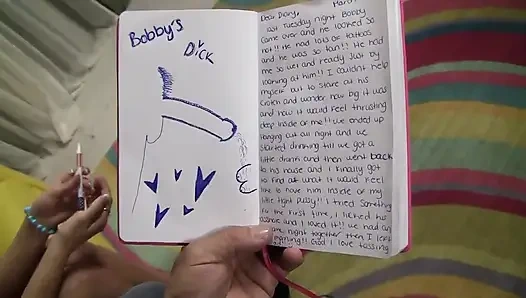 Bobby's
Dick
March
Dear Diary,
last Tuesday night Bobby
came over and he looked so
hot!! He had lots of tattoos
and he was so tan!! He had
me so wet and ready just by
looking at him!! I couldnt help
myself but to stare at his
crotch and wonder how big it was
and how it would feel thrusting
deep inside of me!! we ended up
hanging out all night and we
started drinking till we got a
little drunk and then went back
to his house and I finally got
to find out what it would feel
like to have him inside of my
little tight pussy!! I tried something
for the first time, I licked his
asshole and I loved it!! we had an
night together then I left
morning!! God I love tossing